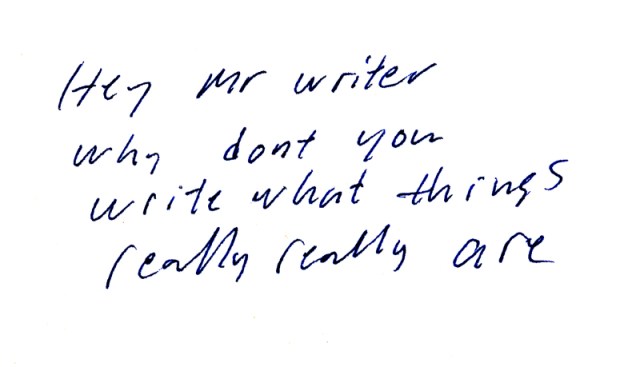 Hey Mr writer
why dont you
write what things
really really are